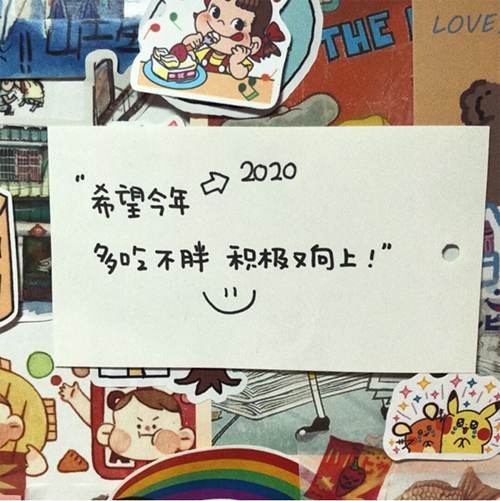 LOVE
THE
2020
“希望今年
多吃不胖 积极又向上！”